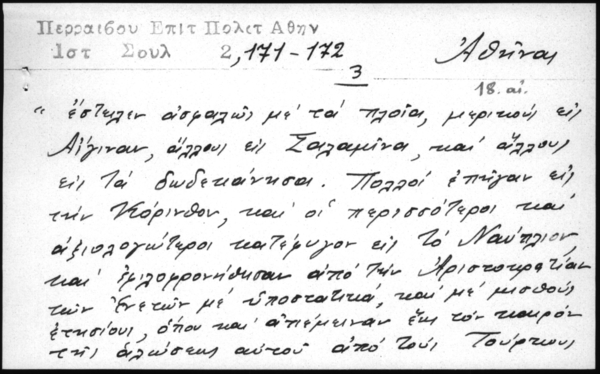 Περραιβου Επιτ Πολιτ Αθην
1στ Σουλ 2, 171-172
Ἀθῆναι
3
18. αἰ.
" ἔστειλεν ἀσφαλῶς μέ τά πλοῖα, μερικούς εἰς
Αἴγιναν, ἄλλους εἰς Σαλαμῖνα, καί ἄλλους
εἰς τά δωδεκάνησα. Πολλοί ἐπῆγαν εἰς
τήν Κόρινθον, καί οἱ περισσότεροι καί
ἀξιολογώτεροι κατέφυγον εἰς τό Ναύπλιον,
καί ἐφιλοφρονήθησαν ἀπό τήν Ἀριστοκρατίαν
τῶν Ἐνετῶν μέ ὑποστατικά, καί μέ μισθούς
ἐτησίους, ὅπου καί ἀπέμειναν ἕως τόν καιρόν
τῆς ἁλώσεως αὐτοῦ ἀπό τούς Τούρκους